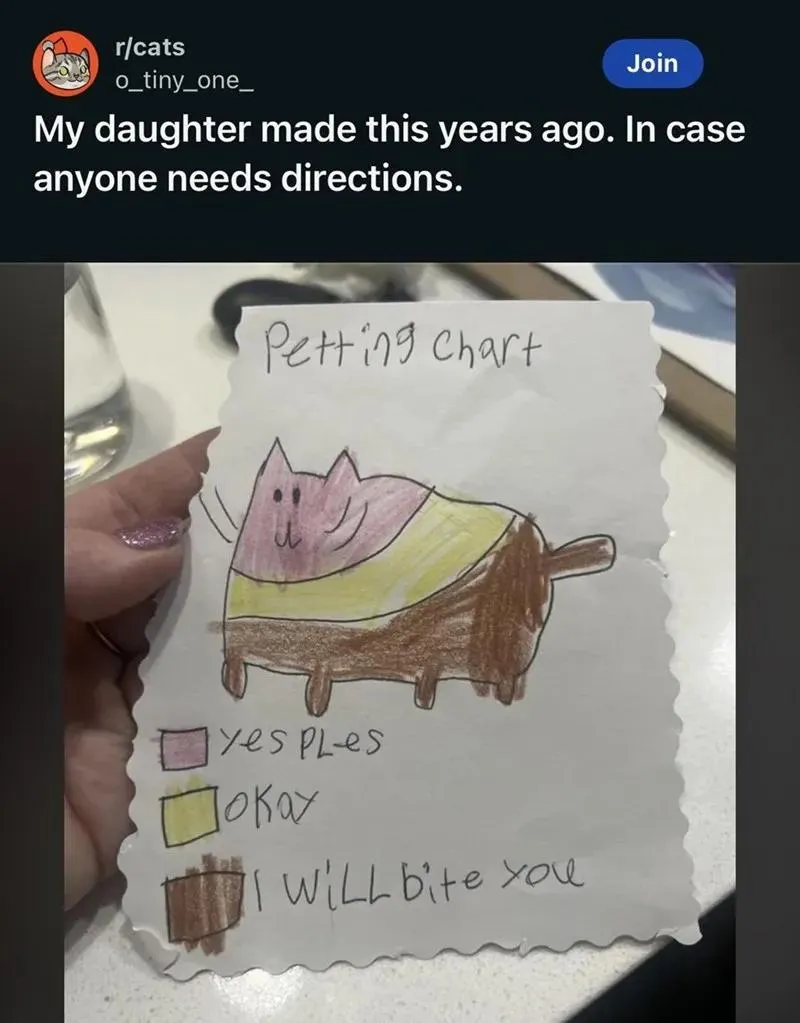 r/cats
o_tiny_one_
Join
My daughter made this years ago. In case
anyone needs directions.
Petting Chart
yes PLes
okay
I WiLL bite you